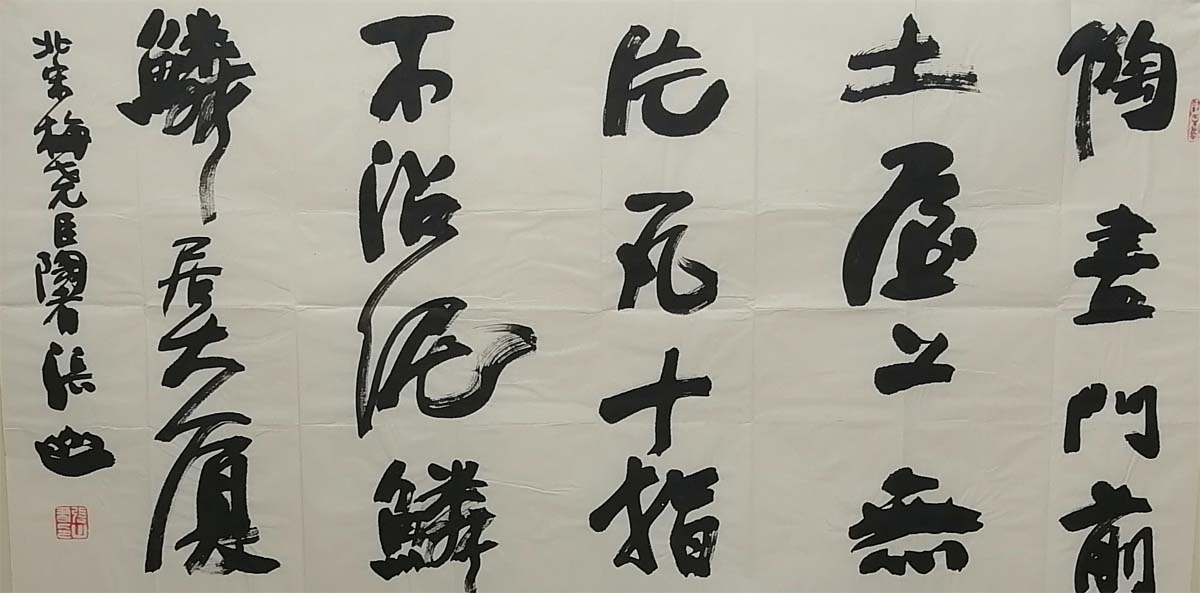 陶盡門前
土屋上無
片瓦十指
不沾泥鱗
鱗居大厦
北宋梅尧臣陶者 張